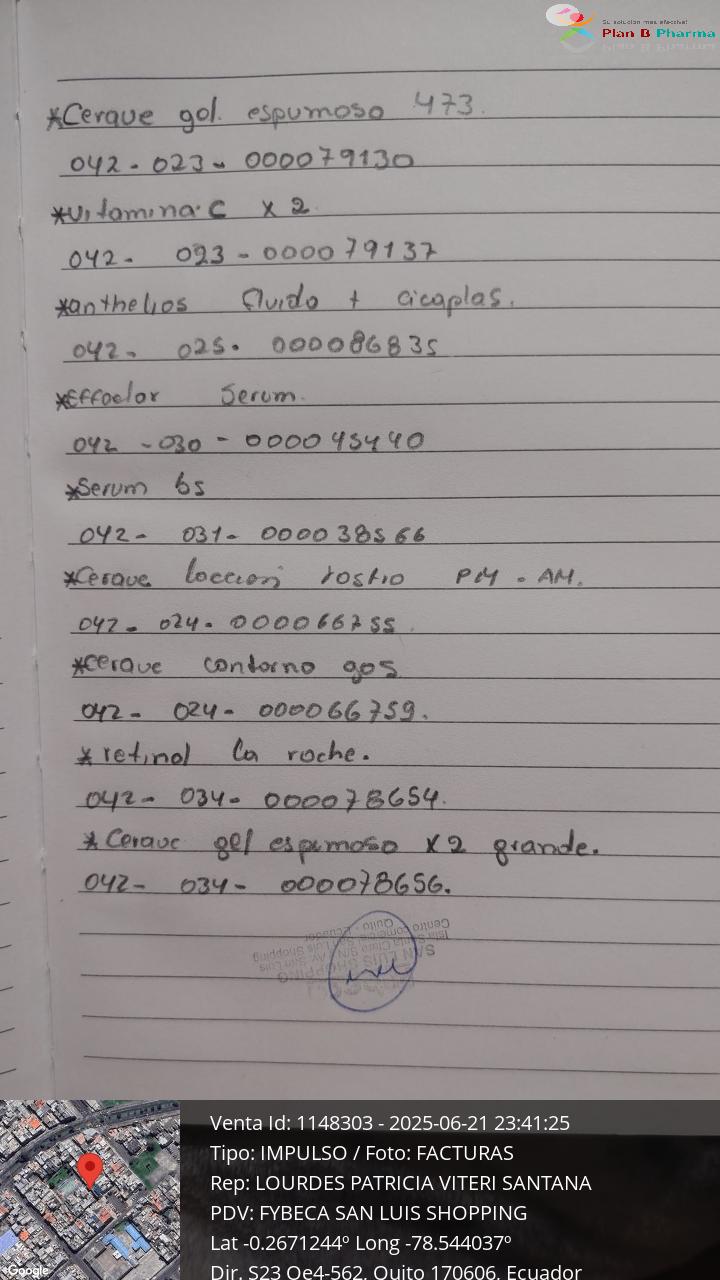 Su solución más efectiva!
Plan B Pharma
*Cerave gol. espumoso 473.
042 - 023 - 000079130
*Vitamina C x 2
042 - 023 - 000079137
*anthelios fluido + cicaplas.
042 - 025 - 000086835
*Effaclar Serum.
042 - 030 - 000045440
*Serum b5
042 - 031 - 000038566
*Cerave loccion rostro PM - AM.
042 - 024 - 000066755
*cerave contorno gos
042 - 024 - 000066759.
*retinol la roche.
042 - 034 - 000078654.
*Cerave gel espumoso x 2 grande.
042 - 034 - 000078656.
SAN LUIS SHOPPING
Isla Santa Clara S/N y Av. San Luis
Centro Comercial San Luis Shopping
Quito - Ecuador
Google
Venta Id: 1148303 - 2025-06-21 23:41:25
Tipo: IMPULSO / Foto: FACTURAS
Rep: LOURDES PATRICIA VITERI SANTANA
PDV: FYBECA SAN LUIS SHOPPING
Lat -0.2671244º Long -78.544037º
Dir. S23 Oe4-562, Quito 170606, Ecuador